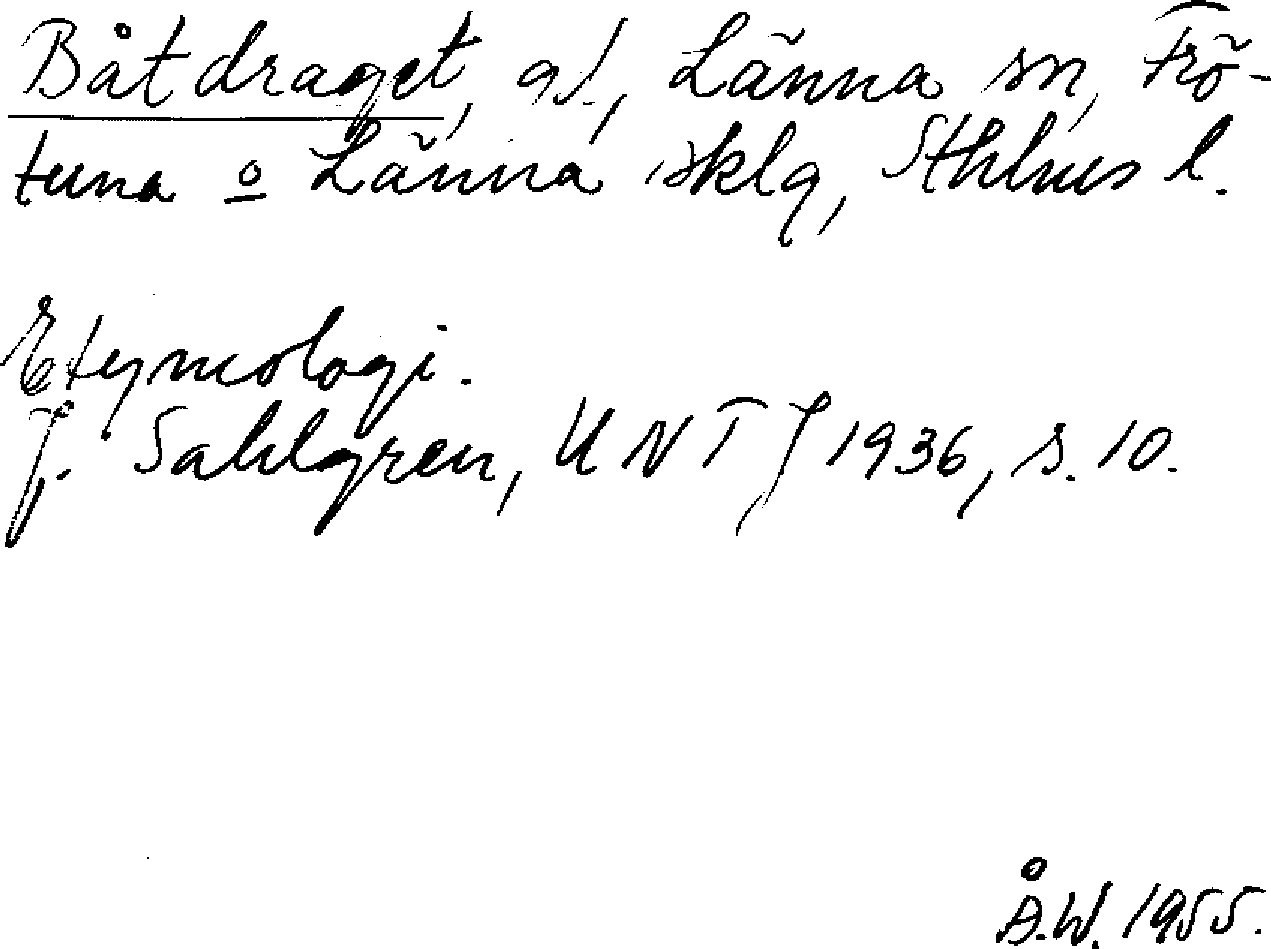 Båtdraget, gd., Länna sn, Frö-
tuna o Länna sklg, Sthlms l.
Etymologi.
J. Sahlgren, UNT J 1936, s. 10.
Å.W. 1955.